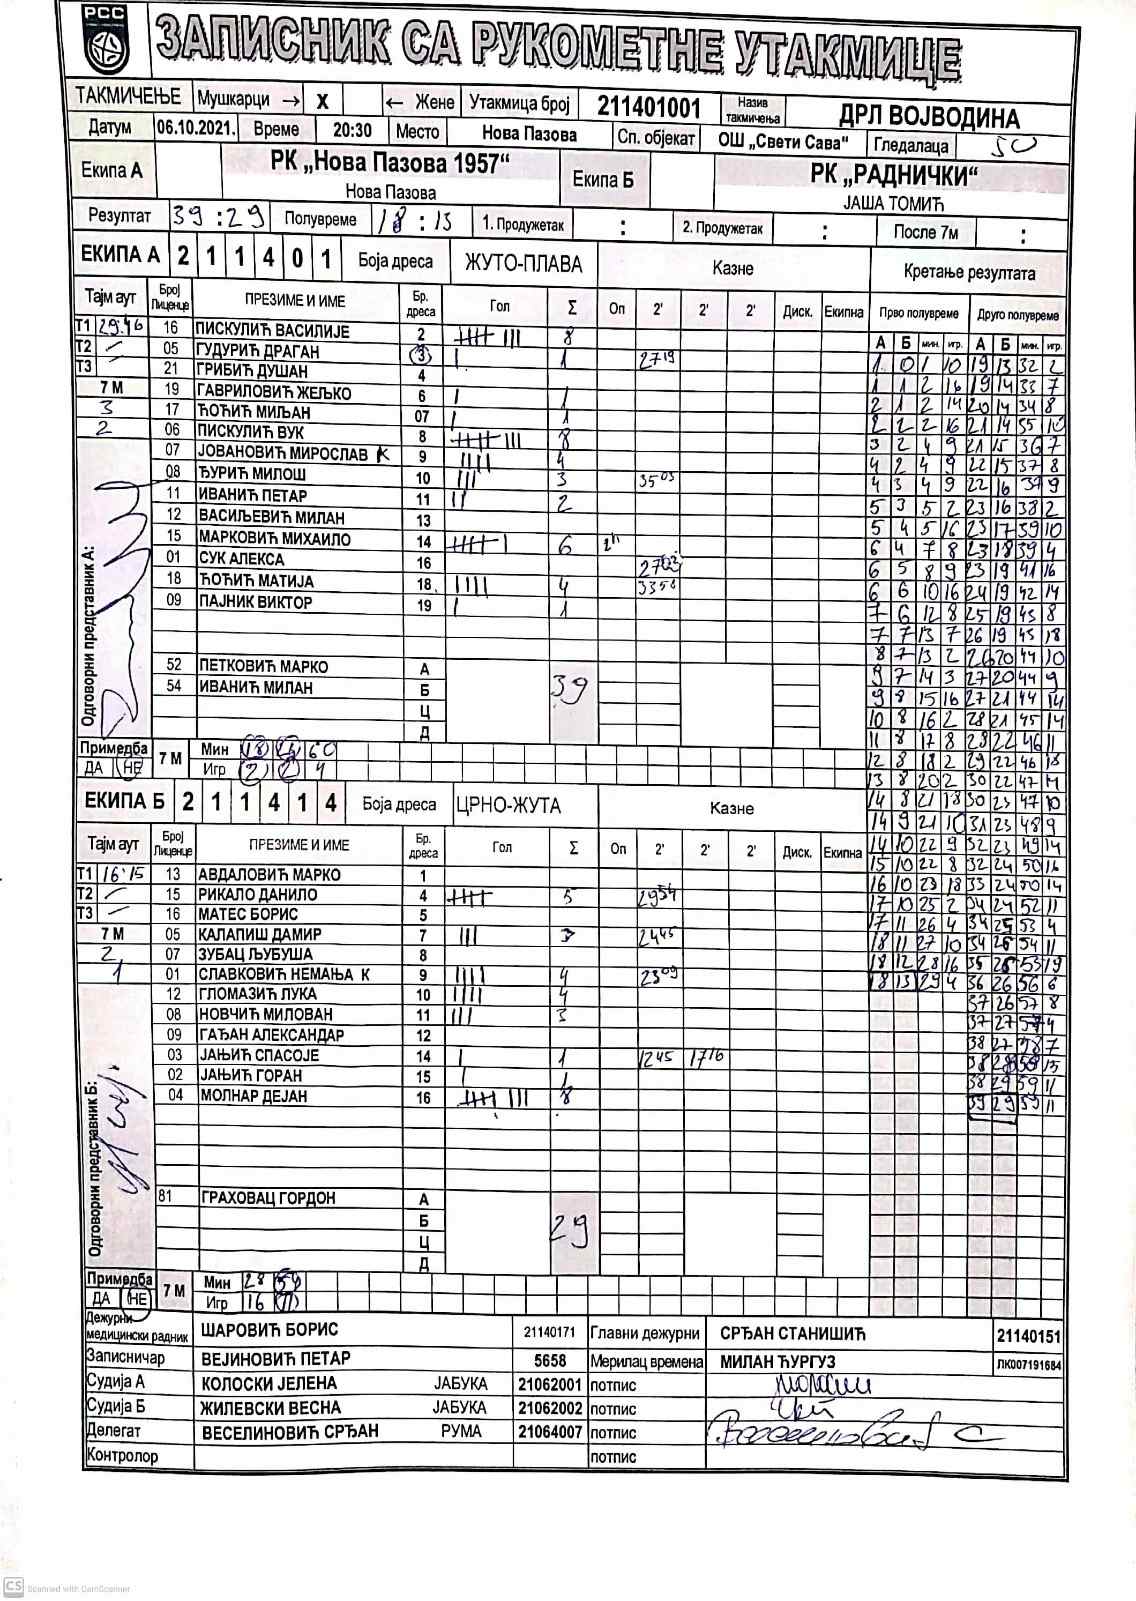 РСС
ЗАПИСНИК СА РУКОМЕТНЕ УТАКМИЦЕ
ТАКМИЧЕЊЕ Мушкарци → X ← Жене Утакмица број 211401001 Назив такмичења ДРЛ ВОЈВОДИНА
Датум 06.10.2021. Време 20:30 Место Нова Пазова Сп. објекат ОШ „Свети Сава“ Гледалаца 50
Екипа А РК „Нова Пазова 1957“ Екипа Б РК „РАДНИЧКИ“
Нова Пазова ЈАША ТОМИЋ
Резултат 39:29 Полувреме 18:13 1. Продужетак : 2. Продужетак : После 7м :
ЕКИПА А 2 1 1 4 0 1 Боја дреса ЖУТО-ПЛАВА Казне Кретање резултата
Тајм аут Број Лиценце ПРЕЗИМЕ И ИМЕ Бр. дреса Гол Σ Оп 2' 2' 2' Диск. Екипна Прво полувреме Друго полувреме
А Б мин. игр. А Б мин. игр.
Т1 29:46 16 ПИСКУЛИЋ ВАСИЛИЈЕ 2 8
Т2 05 ГУДУРИЋ ДРАГАН 3 1 2719
Т3 21 ГРИБИЋ ДУШАН 4
7 М 19 ГАВРИЛОВИЋ ЖЕЉКО 6 1
3 17 ЋОЋИЋ МИЉАН 07 1
2 06 ПИСКУЛИЋ ВУК 8 8
07 ЈОВАНОВИЋ МИРОСЛАВ К 9 4
08 ЂУРИЋ МИЛОШ 10 3 3503
11 ИВАНИЋ ПЕТАР 11 2
12 ВАСИЉЕВИЋ МИЛАН 13
15 МАРКОВИЋ МИХАИЛО 14 6
01 СУК АЛЕКСА 16
18 ЋОЋИЋ МАТИЈА 18 4
09 ПАЈНИК ВИКТОР 19 1
52 ПЕТКОВИЋ МАРКО А
54 ИВАНИЋ МИЛАН Б
Ц
Д
39
Одговорни представник А:
Примедба ДА НЕ 7 М Мин 18 60
Игр 2 2 4
1 0 1 10 19 13 32 2
1 1 2 16 19 14 33 7
2 1 2 14 20 14 34 8
2 2 2 16 21 14 35 10
3 2 4 9 21 15 36 7
4 2 4 9 22 15 37 8
4 3 4 9 22 16 37 9
5 3 5 2 23 16 38 2
5 4 5 16 23 17 39 10
6 4 7 8 23 18 39 4
6 5 8 9 23 19 41 16
6 6 10 16 24 19 42 14
7 6 12 8 25 19 43 8
7 7 13 7 26 19 43 18
8 7 13 2 26 20 44 10
9 7 14 3 27 20 44 9
9 8 15 16 27 21 44 14
10 8 16 2 28 21 45 14
11 8 17 8 28 22 46 11
12 8 18 2 29 22 46 18
13 8 20 2 30 22 47 14
14 8 21 18 30 23 47 10
14 9 21 10 31 23 48 9
14 10 22 9 32 23 49 14
15 10 22 8 32 24 50 16
16 10 23 18 33 24 50 14
17 10 25 2 34 24 52 11
17 11 26 4 34 25 53 4
18 11 27 10 34 26 54 11
18 12 28 16 35 26 19
18 13 29 4 36 26 56 6
37 26 57 8
37 27 57 4
38 27 7
38 28
38 29 59 11
39 29 59 11
ЕКИПА Б 2 1 1 4 1 4 Боја дреса ЦРНО-ЖУТА Казне
Тајм аут Број Лиценце ПРЕЗИМЕ И ИМЕ Бр. дреса Гол Σ Оп 2' 2' 2' Диск. Екипна
Т1 16:15 13 АВДАЛОВИЋ МАРКО 1
Т2 15 РИКАЛО ДАНИЛО 4 5 2954
Т3 16 МАТЕС БОРИС 5
7 М 05 КАЛАПИШ ДАМИР 7 3 2445
2 07 ЗУБАЦ ЉУБУША 8
1 01 СЛАВКОВИЋ НЕМАЊА К 9 4 2309
12 ГЛОМАЗИЋ ЛУКА 10 4
08 НОВЧИЋ МИЛОВАН 11 3
09 ГАЂАН АЛЕКСАНДАР 12
03 ЈАЊИЋ СПАСОЈЕ 14 1 1245 1716
02 ЈАЊИЋ ГОРАН 15 1
04 МОЛНАР ДЕЈАН 16 8
81 ГРАХОВАЦ ГОРДОН А
Б
Ц
Д
29
Одговорни представник Б:
Примедба ДА НЕ 7 М Мин 28 59
Игр 16 11
Дежурни медицински радник ШАРОВИЋ БОРИС 21140171 Главни дежурни СРЂАН СТАНИШИЋ 21140151
Записничар ВЕЈИНОВИЋ ПЕТАР 5658 Мерилац времена МИЛАН ЋУРГУЗ ЛК007191684
Судија А КОЛОСКИ ЈЕЛЕНА ЈАБУКА 21062001 потпис
Судија Б ЖИЛЕВСКИ ВЕСНА ЈАБУКА 21062002 потпис
Делегат ВЕСЕЛИНОВИЋ СРЂАН РУМА 21064007 потпис
Контролор потпис
CS Scanned with CamScanner